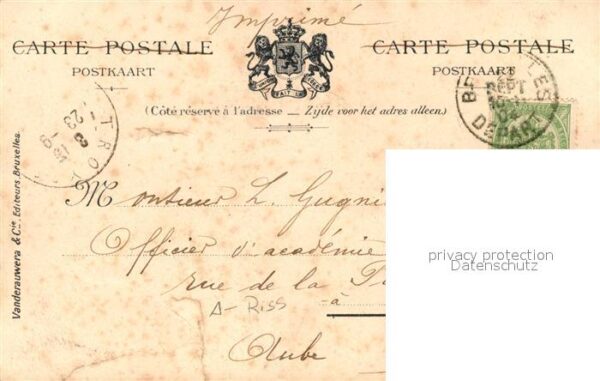 Imprimé
CARTE POSTALE CARTE POSTALE
POSTKAART POSTKAART
(Côté réservé à l'adresse — Zijde voor het adres alleen.)
SEPT
04
DÉPART
TRO
23
8
Vanderauwera & Cie, Editeurs, Bruxelles.
Monsieur L. Gugni
Officier d'académie
rue de la
à
Δ-Riss
Aube
privacy protection
Datenschutz